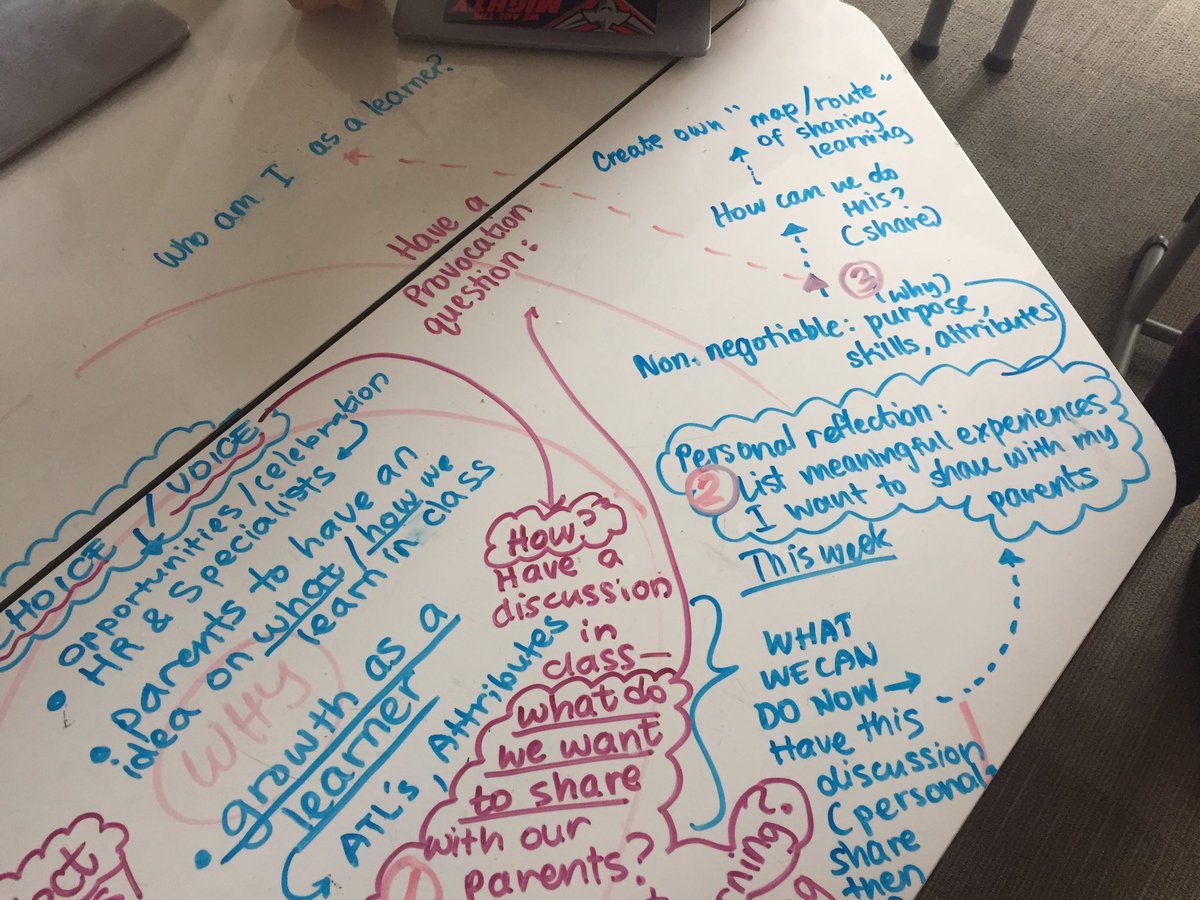 WE ARE THE
MIGHTY
who am I as a learner?
Have a
Provocation
question:
Create own "map/route"
of sharing-
learning
How can we do
this?
(share)
3
(why)
Non-negotiable: purpose,
skills, attributes
Personal reflection:
2 List meaningful experiences
I want to share with my
parents
This week
CHOICE / VOICE
• opportunities/celebration
HR & Specialists
• parents to have an
idea on what/how we
learn in class
WHY
• growth as a
learner
ATL's, Attributes
How?
Have a
discussion
in
class—
what do
we want
to share
with our
parents?
1
WHAT
WE CAN
DO NOW →
Have this
discussion
(personal)
share
then